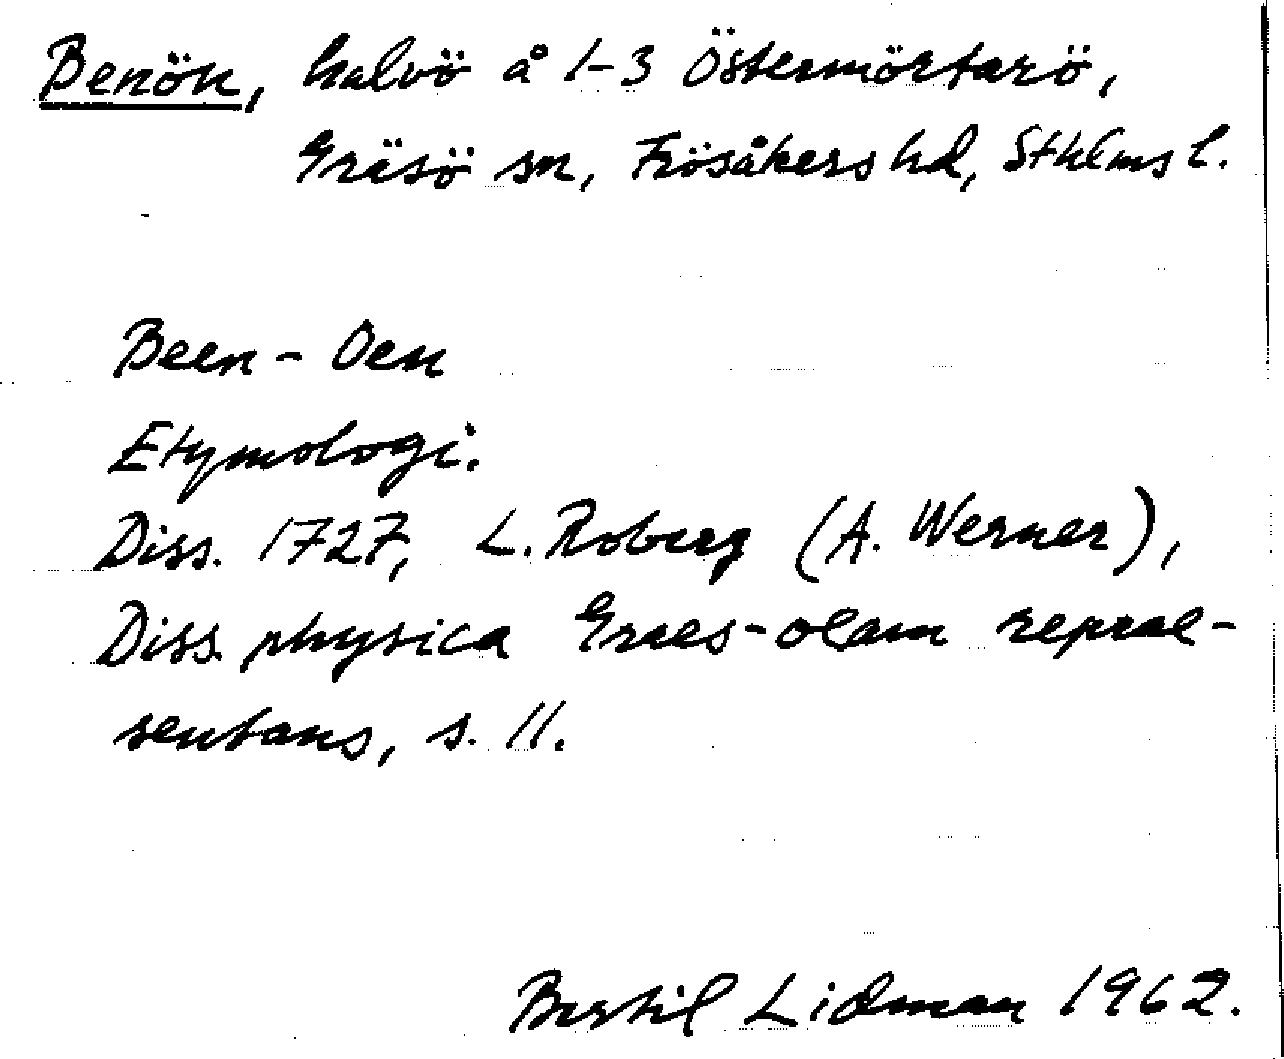 Benön, halvö å 1-3 Östermörtarö,
Gräsö sn, Frösåkers hd, Sthlms l.
Been-Oen
Etymologi.
Diss. 1727, L. Roberg (A. Werner),
Diss. physica Graes-olam reprae-
sentans, s. 11.
Bertil Lidman 1962.